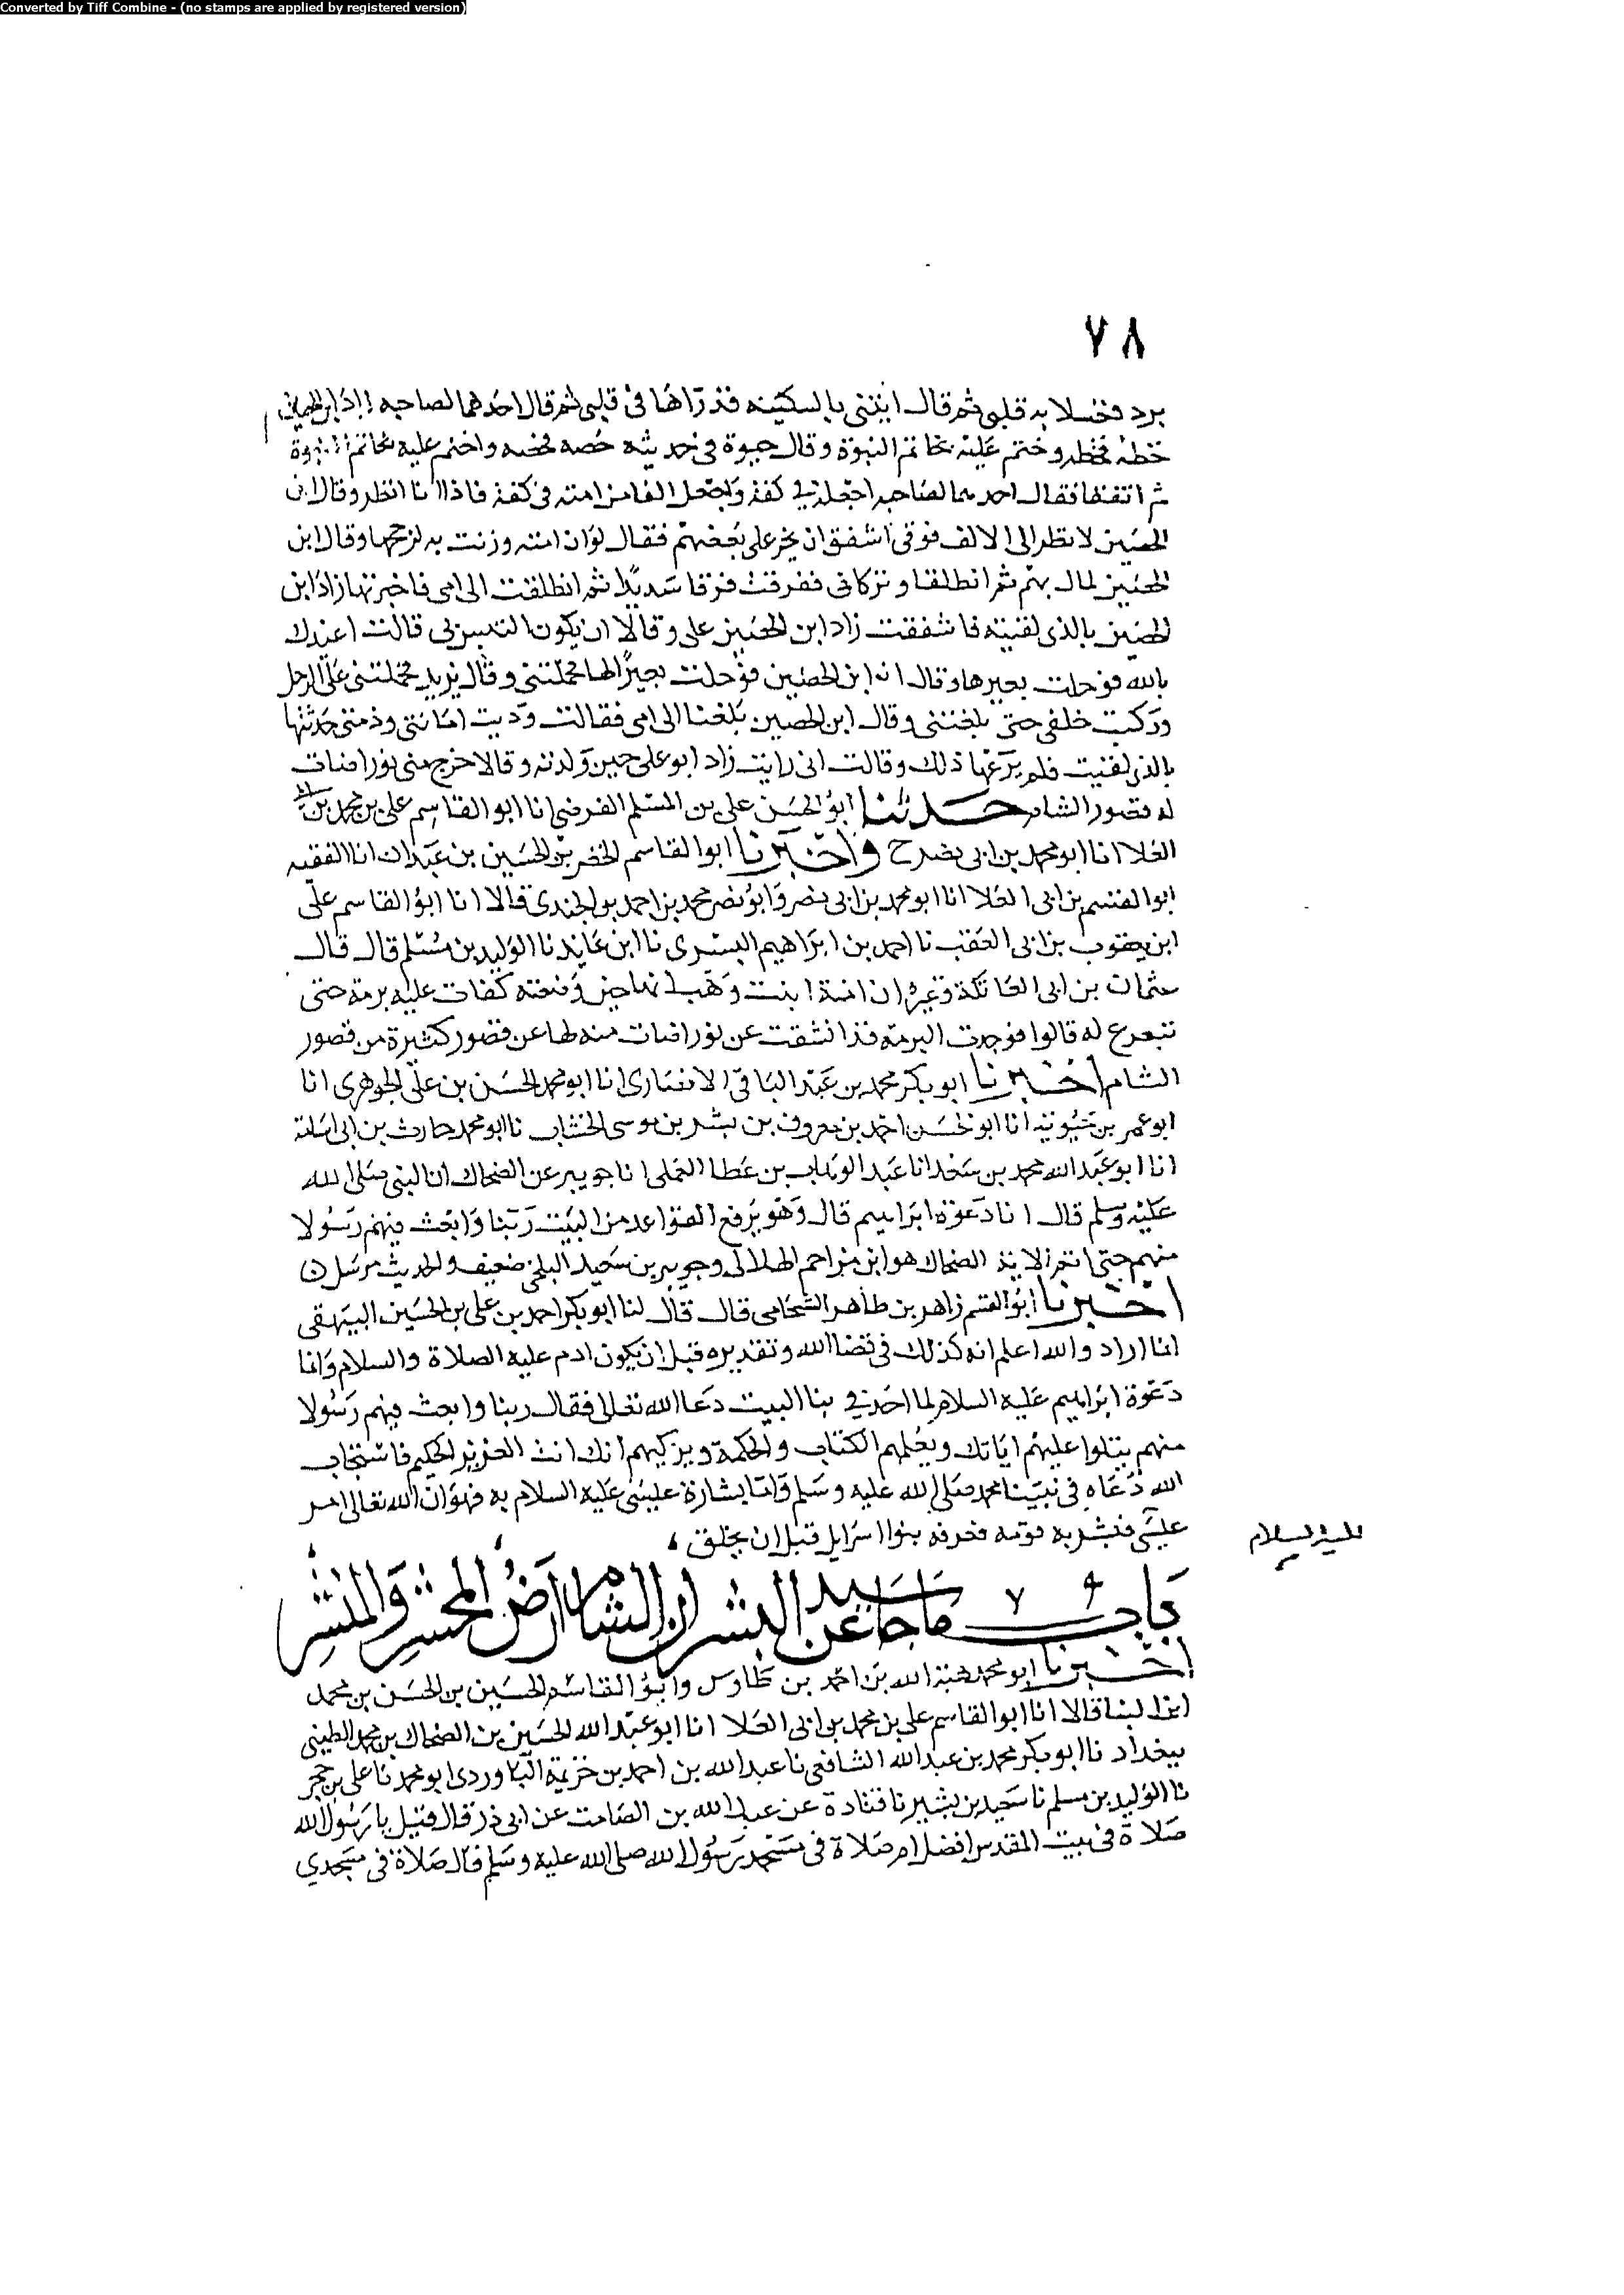 Converted by Tiff Combine - (no stamps are applied by registered version)
٧٨
برد فغسلا به قلبى ثم قال ايتنى بالسكينه فذراها فى قلبى ثم قال احدهما لصاحبه زاد ابن الحصين
خطه فخطه وختم عليه بخاتم النبوة وقال حيوة فى حديثه حصه فحصه واختم عليه بخاتم النبوة
ثم اتفقا فقال احدهما لصاحبه اجعله فى كفة واجعل الفا من امته فى كفة فاذا انا انظر وقال ابن
الحصين لانظر الى الالف فوقى اشفق ان يخر على بعضهم فقال لو ان امته وزنت به لرجحها وقال ابن
الحصين لمال بهم ثم انطلقا وتركانى ففرقت فرقا شديدا ثم انطلقت الى امى فاخبرتها زاد ابن
الحصين بالذى لقيته فاشفقت زاد ابن الحصين على وقالا ان يكون التبس بى قالت اعيذك
بالله فرحلت بعيرها وقال ابن الحصين فرحلت بعيرا لها فحملتنى وقال يزيد فحملتنى على الرحل
وركبت خلفى حتى بلغتنى وقال ابن الحصين بلغنا الى امى فقالت وديت امانتى وذمتى حدثتها
بالذى لقيت فلم يرعها ذلك وقالت انى رايت زاد ابو على حين ولدته وقالا خرج منى نور اضات
له قصور الشام حدثنا ابو الحسن على بن المسلم الفرضى انا ابو القاسم على بن محمد بن
العلا انا ابو محمد بن ابى نصر ح واخبرنا ابو القاسم الخضر بن الحسين بن عبدان انا الفقيه
ابو القسم بن ابى العلا انا ابو محمد بن ابى نصر وابو نصر محمد بن احمد بن الجندى قالا انا ابو القاسم على
ابن يعقوب بن ابى العقب نا احمد بن ابراهيم البسرى نا ابن عايذ نا الوليد بن مسلم قال قال
عثمان بن ابى العاتكة وغيره ان امنة ابنت وهب لما حين وضعته كفات عليه برمة حتى
تتفرع له قالوا فوجدت البرمة قد انشقت عن نور اضات منه لها عن قصور كثيرة من قصور
الشام اخبرنا ابو بكر محمد بن عبد الباقى الانصارى انا ابو محمد الحسن بن على الجوهرى انا
ابو عمر بن حيويه انا ابو الحسن احمد بن معروف بن بشر بن موسى الخشاب نا ابو محمد حارث بن ابى اسامة
انا ابو عبد الله محمد بن سعد انا عبد الوهاب بن عطا العجلى انا جويبر عن الضحاك ان النبى صلى الله
عليه وسلم قال انا دعوة ابراهيم قال وهو يرفع القواعد من البيت ربنا وابعث فيهم رسولا
منهم حتى اتم الاية الضحاك هو ابن مزاحم الهلالى وجويبر بن سعيد البلخى ضعيف والحديث مرسل
اخبرنا ابو القسم زاهر بن طاهر الشحامى قال قال لنا ابو بكر احمد بن على بن الحسين البيهقى
انما اراد والله اعلم انه كذلك فى قضا الله وتقديره قبل ان يكون ادم عليه الصلاة والسلام واما
دعوة ابراهيم عليه السلام لما اخذ فى بنا البيت دعا الله تعالى فقال ربنا وابعث فيهم رسولا
منهم يتلوا عليهم اياتك ويعلمهم الكتاب والحكمة ويزكيهم انك انت العزيز الحكيم فاستجاب
الله دعاه فى نبينا محمد صلى الله عليه وسلم واما بشارة عيسى عليه السلام به فهو ان الله تعالى امر
عيسى فبشر به قومه فعرفه بنوا اسرايل قبل ان يخلق
عليه السلام
باب ما جا عن سيد البشر ان الشام ارض المحشر والمنشر
اخبرنا ابو محمد هبة الله بن احمد بن طاوس وابو القاسم الحسين بن الحسن بن محمد
ابن البنا قالا انا ابو القاسم على بن محمد بن ابى العلا انا ابو عبد الله الحسين بن الضحاك بن محمد الطيبى
ببغداد نا ابو بكر محمد بن عبد الله الشافعى نا عبد الله بن احمد بن خزيمة الباوردى ابو محمد نا على بن حجر
نا الوليد بن مسلم نا سعيد بن بشير نا قتادة عن عبد الله بن الصامت عن ابى ذر قال قيل يا رسول الله
صلاة فى بيت المقدس افضل ام صلاة فى مسجد رسول الله صلى الله عليه وسلم قال صلاة فى مسجدي